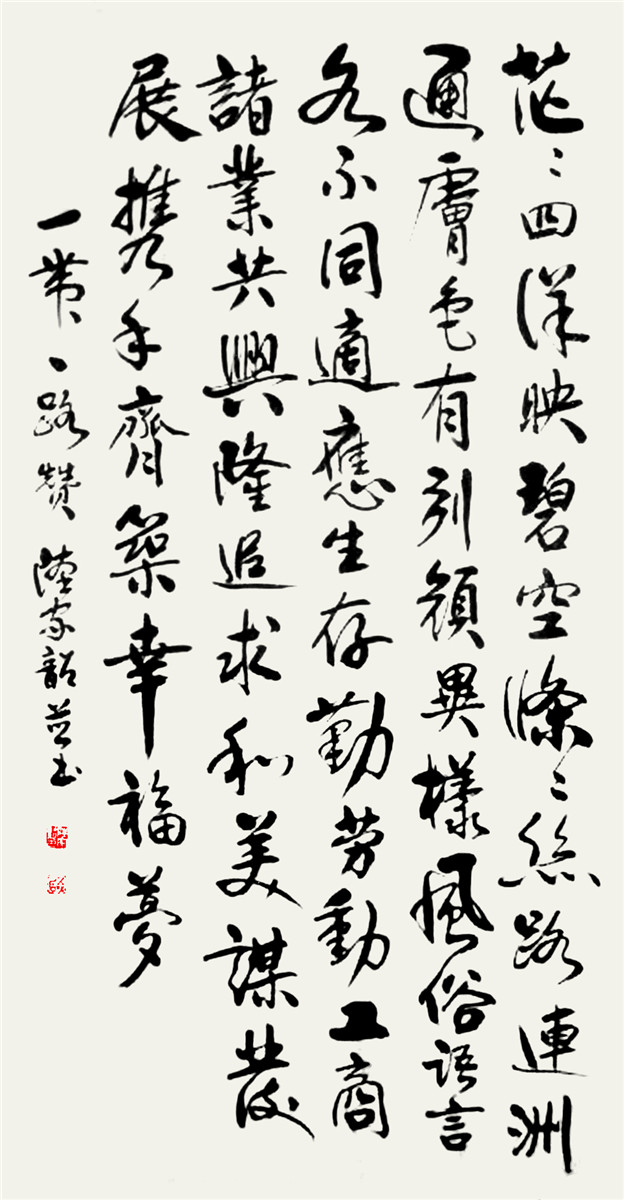 茫〻四洋映碧空條〻絲路連洲
通膚色有别顏異樣風俗語言
各不同適應生存勤劳動工商
諸業共興隆追求和美謀發
展攜手齊築幸福夢
一帶一路贊 陸家韶並書